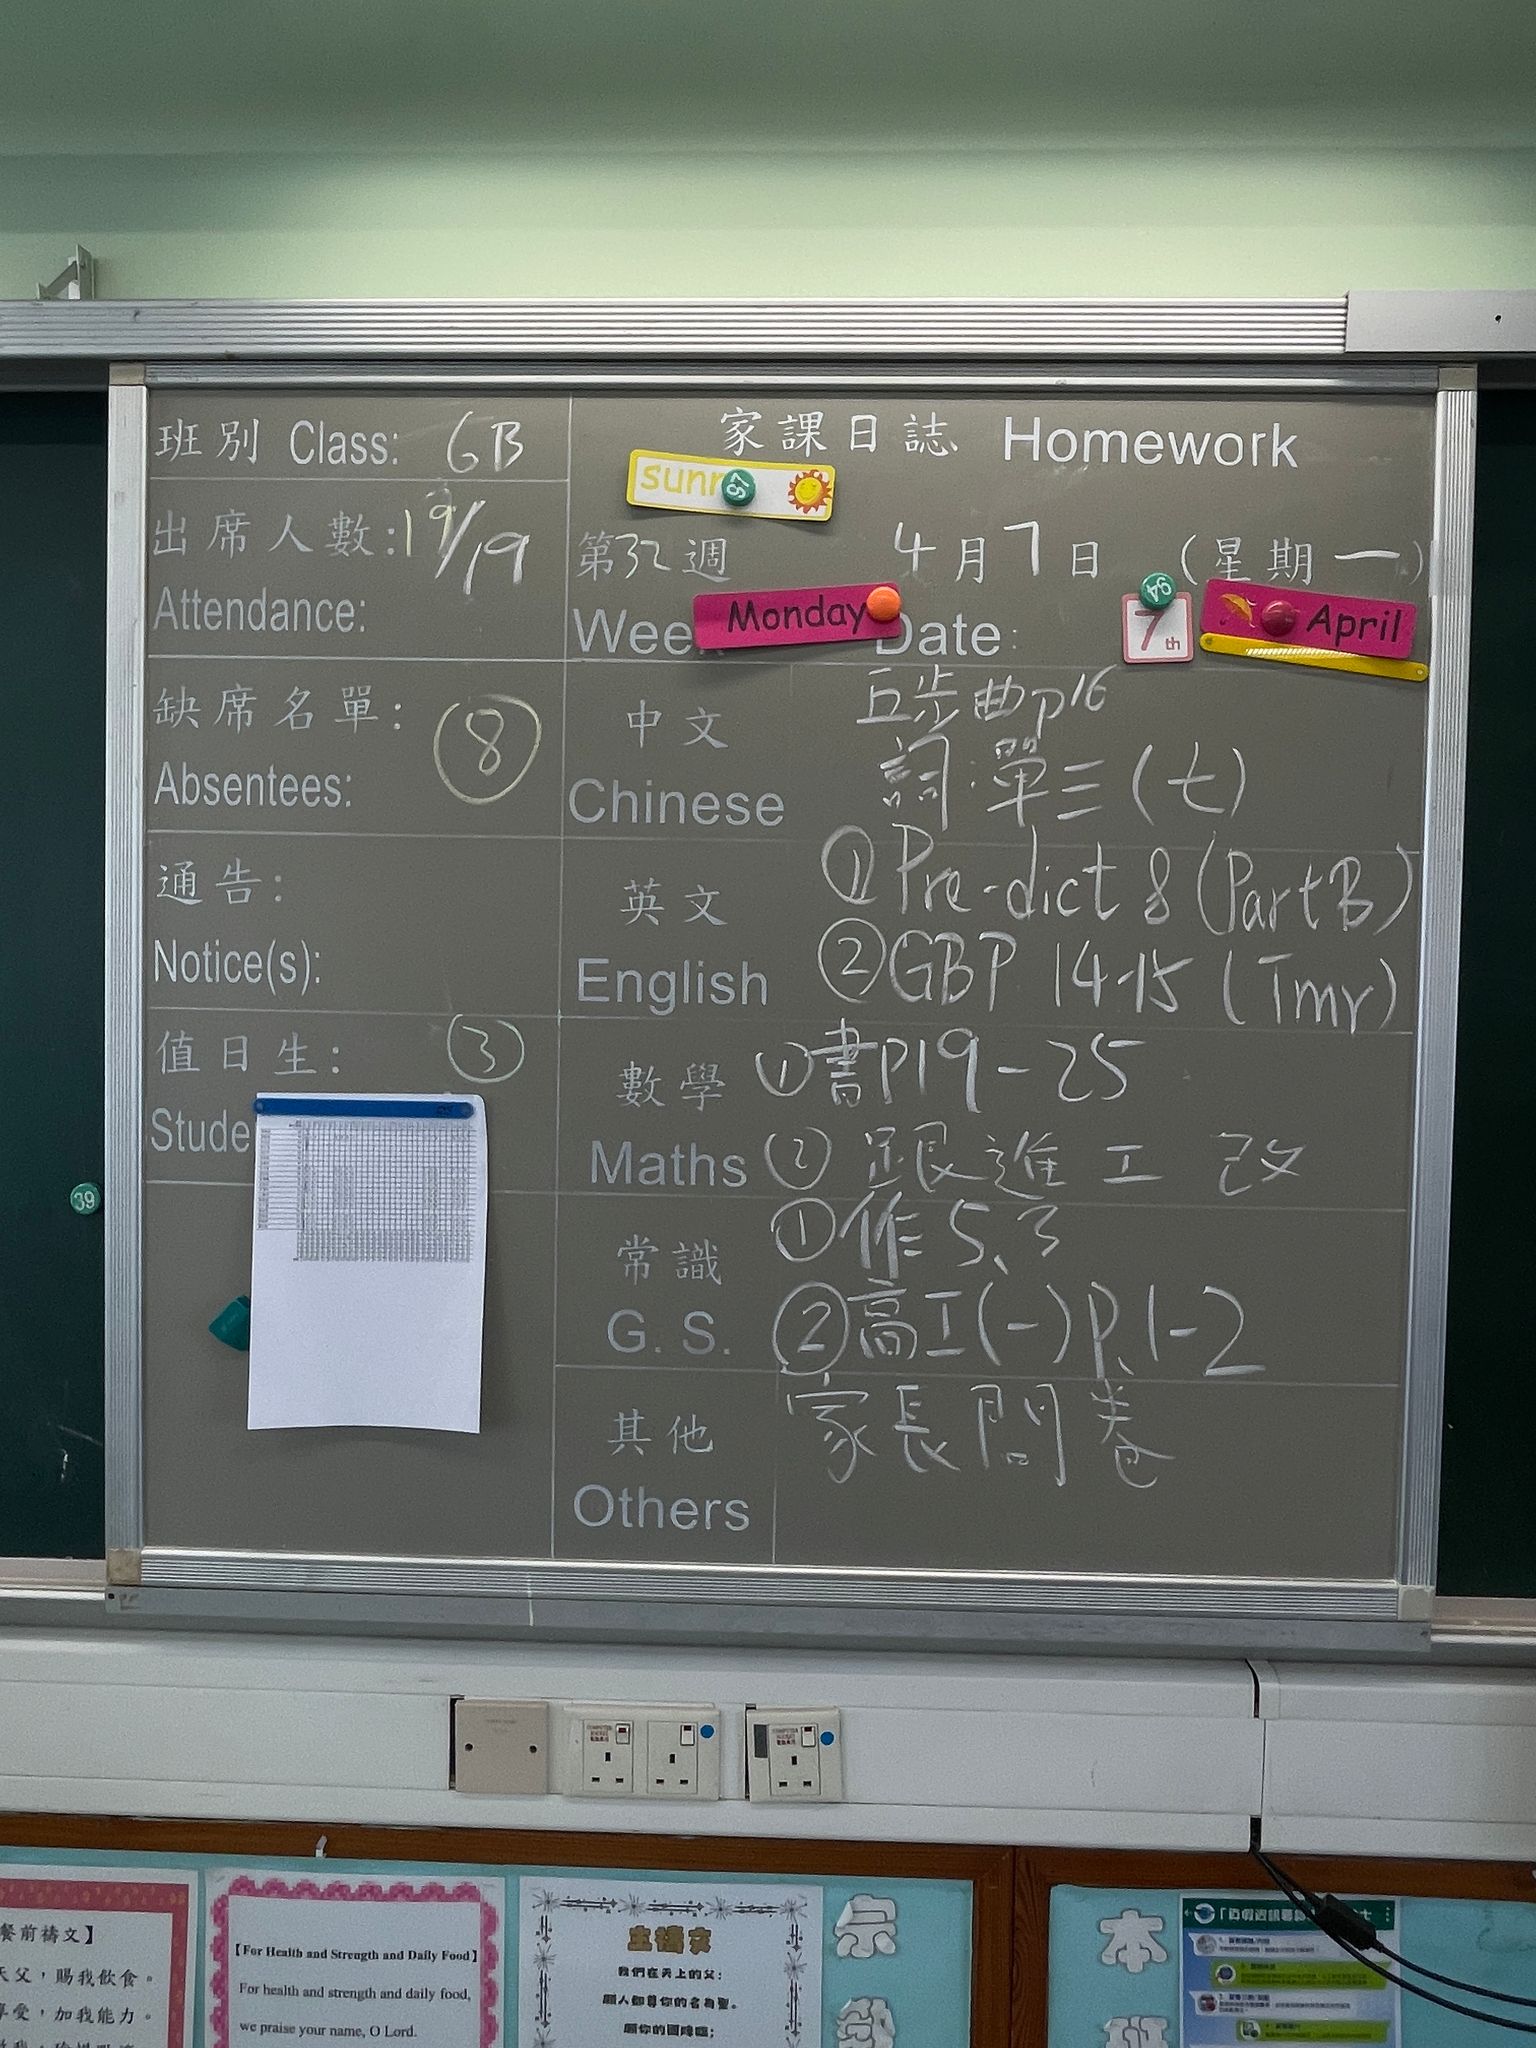 班別 Class: 6B
出席人數: 19/19
Attendance:
缺席名單: ⑧
Absentees:
通告:
Notice(s):
值日生: ③
Stude
家課日誌 Homework
sunn
97
第32週 4月7日 (星期一)
Wee Monday Date: 7th April
94
中文 五步曲p16
Chinese 詞:單三(七)
英文 ①Pre-dict 8 (Part B)
English ②GBP 14-15 (Tmr)
數學 ①書P19-25
Maths ② 跟進工 改
常識 ①作5.3
G. S. ②高工(一)P.1-2
其他 家長問卷
Others
39
餐前禱文】
天父,賜我飲食。
享受,加我能力。
【For Health and Strength and Daily Food】
For health and strength and daily food,
we praise your name, O Lord.
主禱文
我們在天上的父:
願人都尊你的名為聖。
願你的國降臨;
本